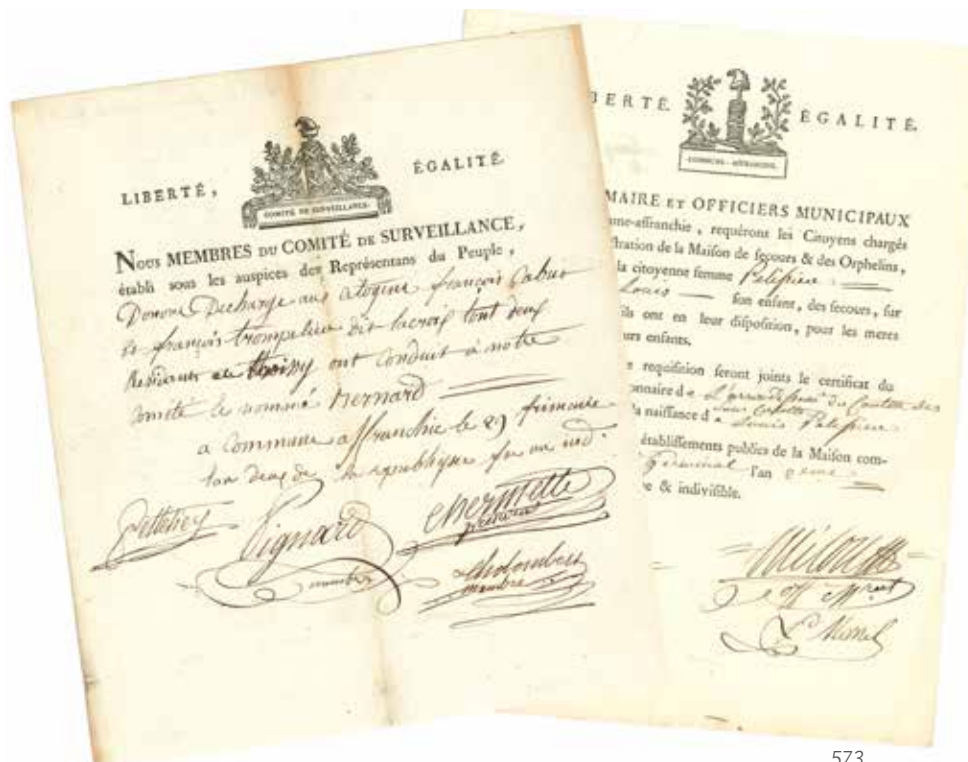 LIBERTÉ,
ÉGALITÉ.
COMITÉ DE SURVEILLANCE.
NOUS MEMBRES DU COMITÉ DE SURVEILLANCE,
établi sous les auspices des Représentans du Peuple,
Donons Decharge aux citoyens françois
et françois dit lacroix tout deux
ont Conduit à notre
Comité le nommé Bernard
a Commune affranchie le 29 frimaire
lan deux de la republique
Pignard
membre
membre
BERTÉ.
ÉGALITÉ.
COMMUNE-AFFRANCHIE.
MAIRE ET OFFICIERS MUNICIPAUX
ne-affranchie, requérons les Citoyens chargés
tration de la Maison de secours & des Orphelins,
la citoyenne femme Pelissier
Louis son enfant, des secours, sur
ils ont en leur disposition, pour les meres
urs enfans.
e requisition seront joints le certificat du
onnaire d
la naissance de Louis Pelissier
établissemens publics de la Maison com-
Germinal l'an
e & indivisible.
573